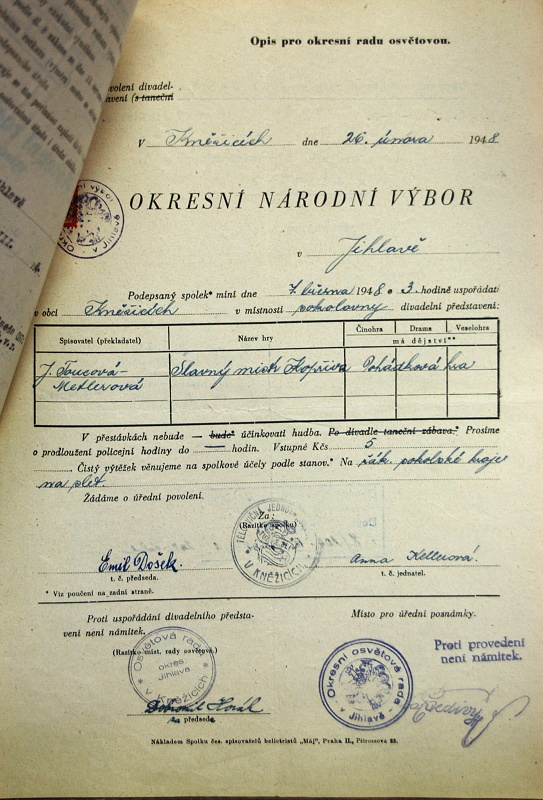 Opis pro okresní radu osvětovou.
volení divadel-
tavení (s taneční
V Kněžicích dne 26. února 1948
OKRESNÍ NÁRODNÍ VÝBOR
v Jihlavě
Podepsaný spolek* míní dne 7. března 1948 o 3. hodině uspořádati
v obci Kněžicích v místnosti sokolovny divadelní představení:
Spisovatel (překladatel) Název hry Činohra Drama Veselohra
má dějství**
J. Toucová- Slavný mistr Kopřiva Pohádková hra
Metlerová
V přestávkách nebude — bude* účinkovati hudba. Po divadle taneční zábava.* Prosíme
o prodloužení policejní hodiny do — hodin. Vstupné Kčs 5
Čistý výtěžek věnujeme na spolkové účely podle stanov.* Na žák. sokolské kroje
na slet.
Žádáme o úřední povolení.
Za:
(Razítko spolku)
TĚLOCVIČNÁ JEDNOTA
V KNĚŽICÍCH
Emil Došek Anna Kellerová.
t. č. předseda. t. č. jednatel.
* Viz poučení na zadní straně.
Proti uspořádání divadelního představení není námitek.
Místo pro úřední poznámky.
(Razítko míst. rady osvětové.)
Osvětová rada
okres
Jihlava
v Kněžicích
Bohumil Horák
předseda
Okresní osvětová rada
v Jihlavě
Proti provedení
není námitek.
Nákladem Spolku čes. spisovatelů beletristů „Máj", Praha II.,